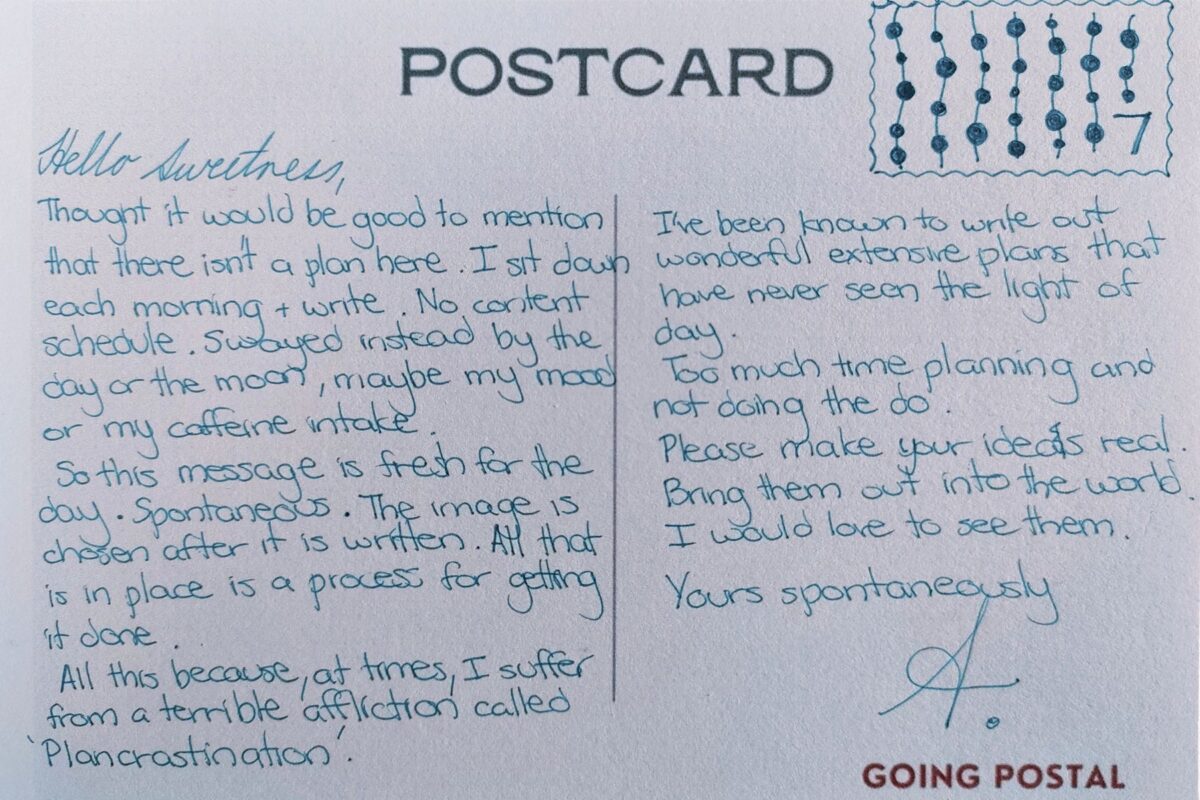 POSTCARD
7
Hello Sweetness,
Thought it would be good to mention
that there isn't a plan here. I sit down
each morning + write. No content
schedule. Swayed instead by the
day or the moon, maybe my mood
or my caffeine intake.
So this message is fresh for the
day. Spontaneous. The image is
chosen after it is written. All that
is in place is a process for getting
it done.
All this because, at times, I suffer
from a terrible affliction called
'Plancrastination'.
I've been known to write out
wonderful extensive plans that
have never seen the light of
day.
Too much time planning and
not doing the do.
Please make your ideas real.
Bring them out into the world.
I would love to see them.
Yours spontaneously
A.
GOING POSTAL